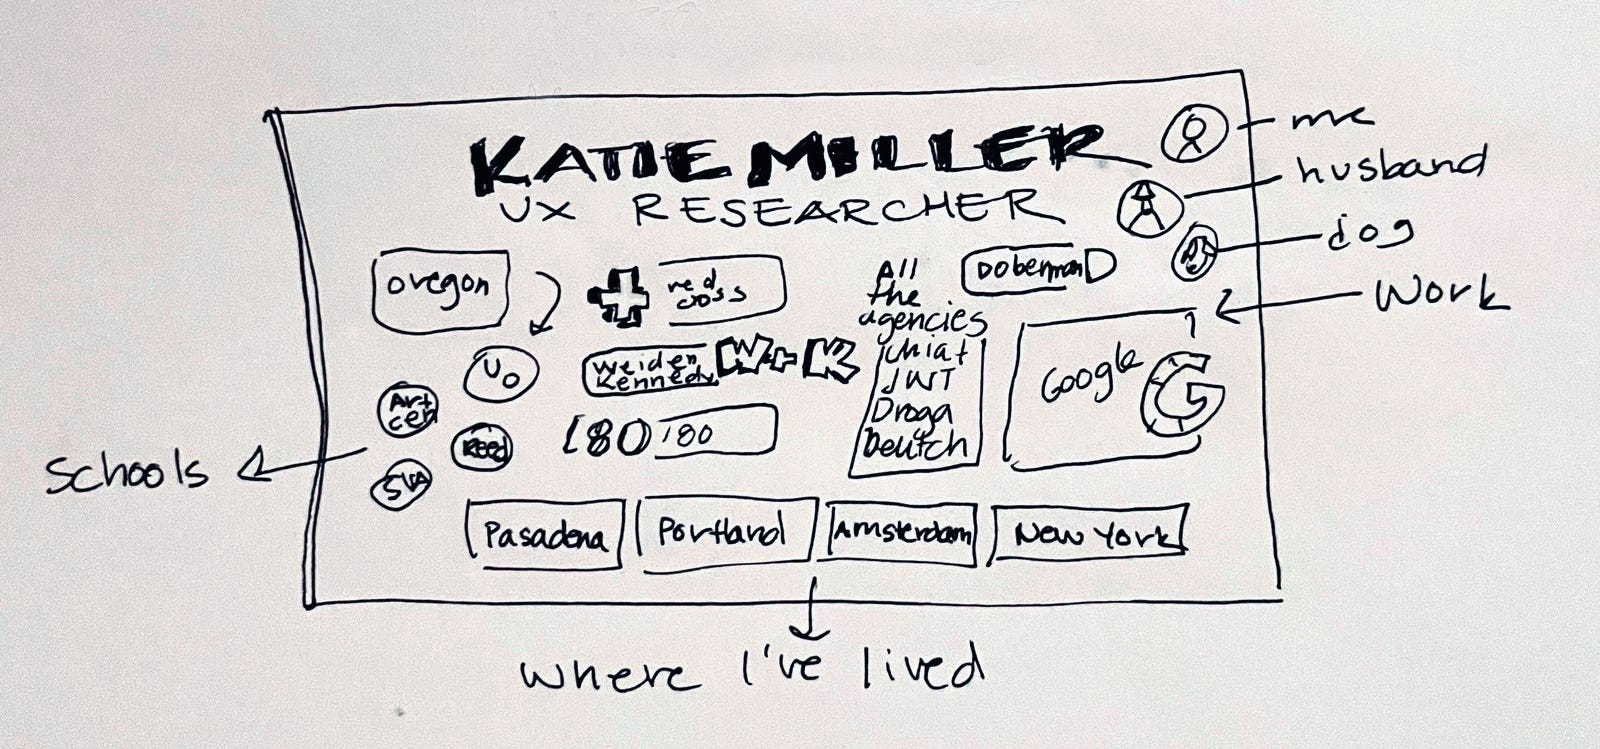 KATIE MILLER
UX RESEARCHER
me
husband
dog
Work
oregon
red
cross
All
the
agencies
DobermanD
UO
Weiden
Kennedy
W+K
Chiat
JWT
Droga
Deutch
Google
G
Art
cen
Reed
SVA
180
180
Schools
Pasadena
Portland
Amsterdam
New York
where I've lived